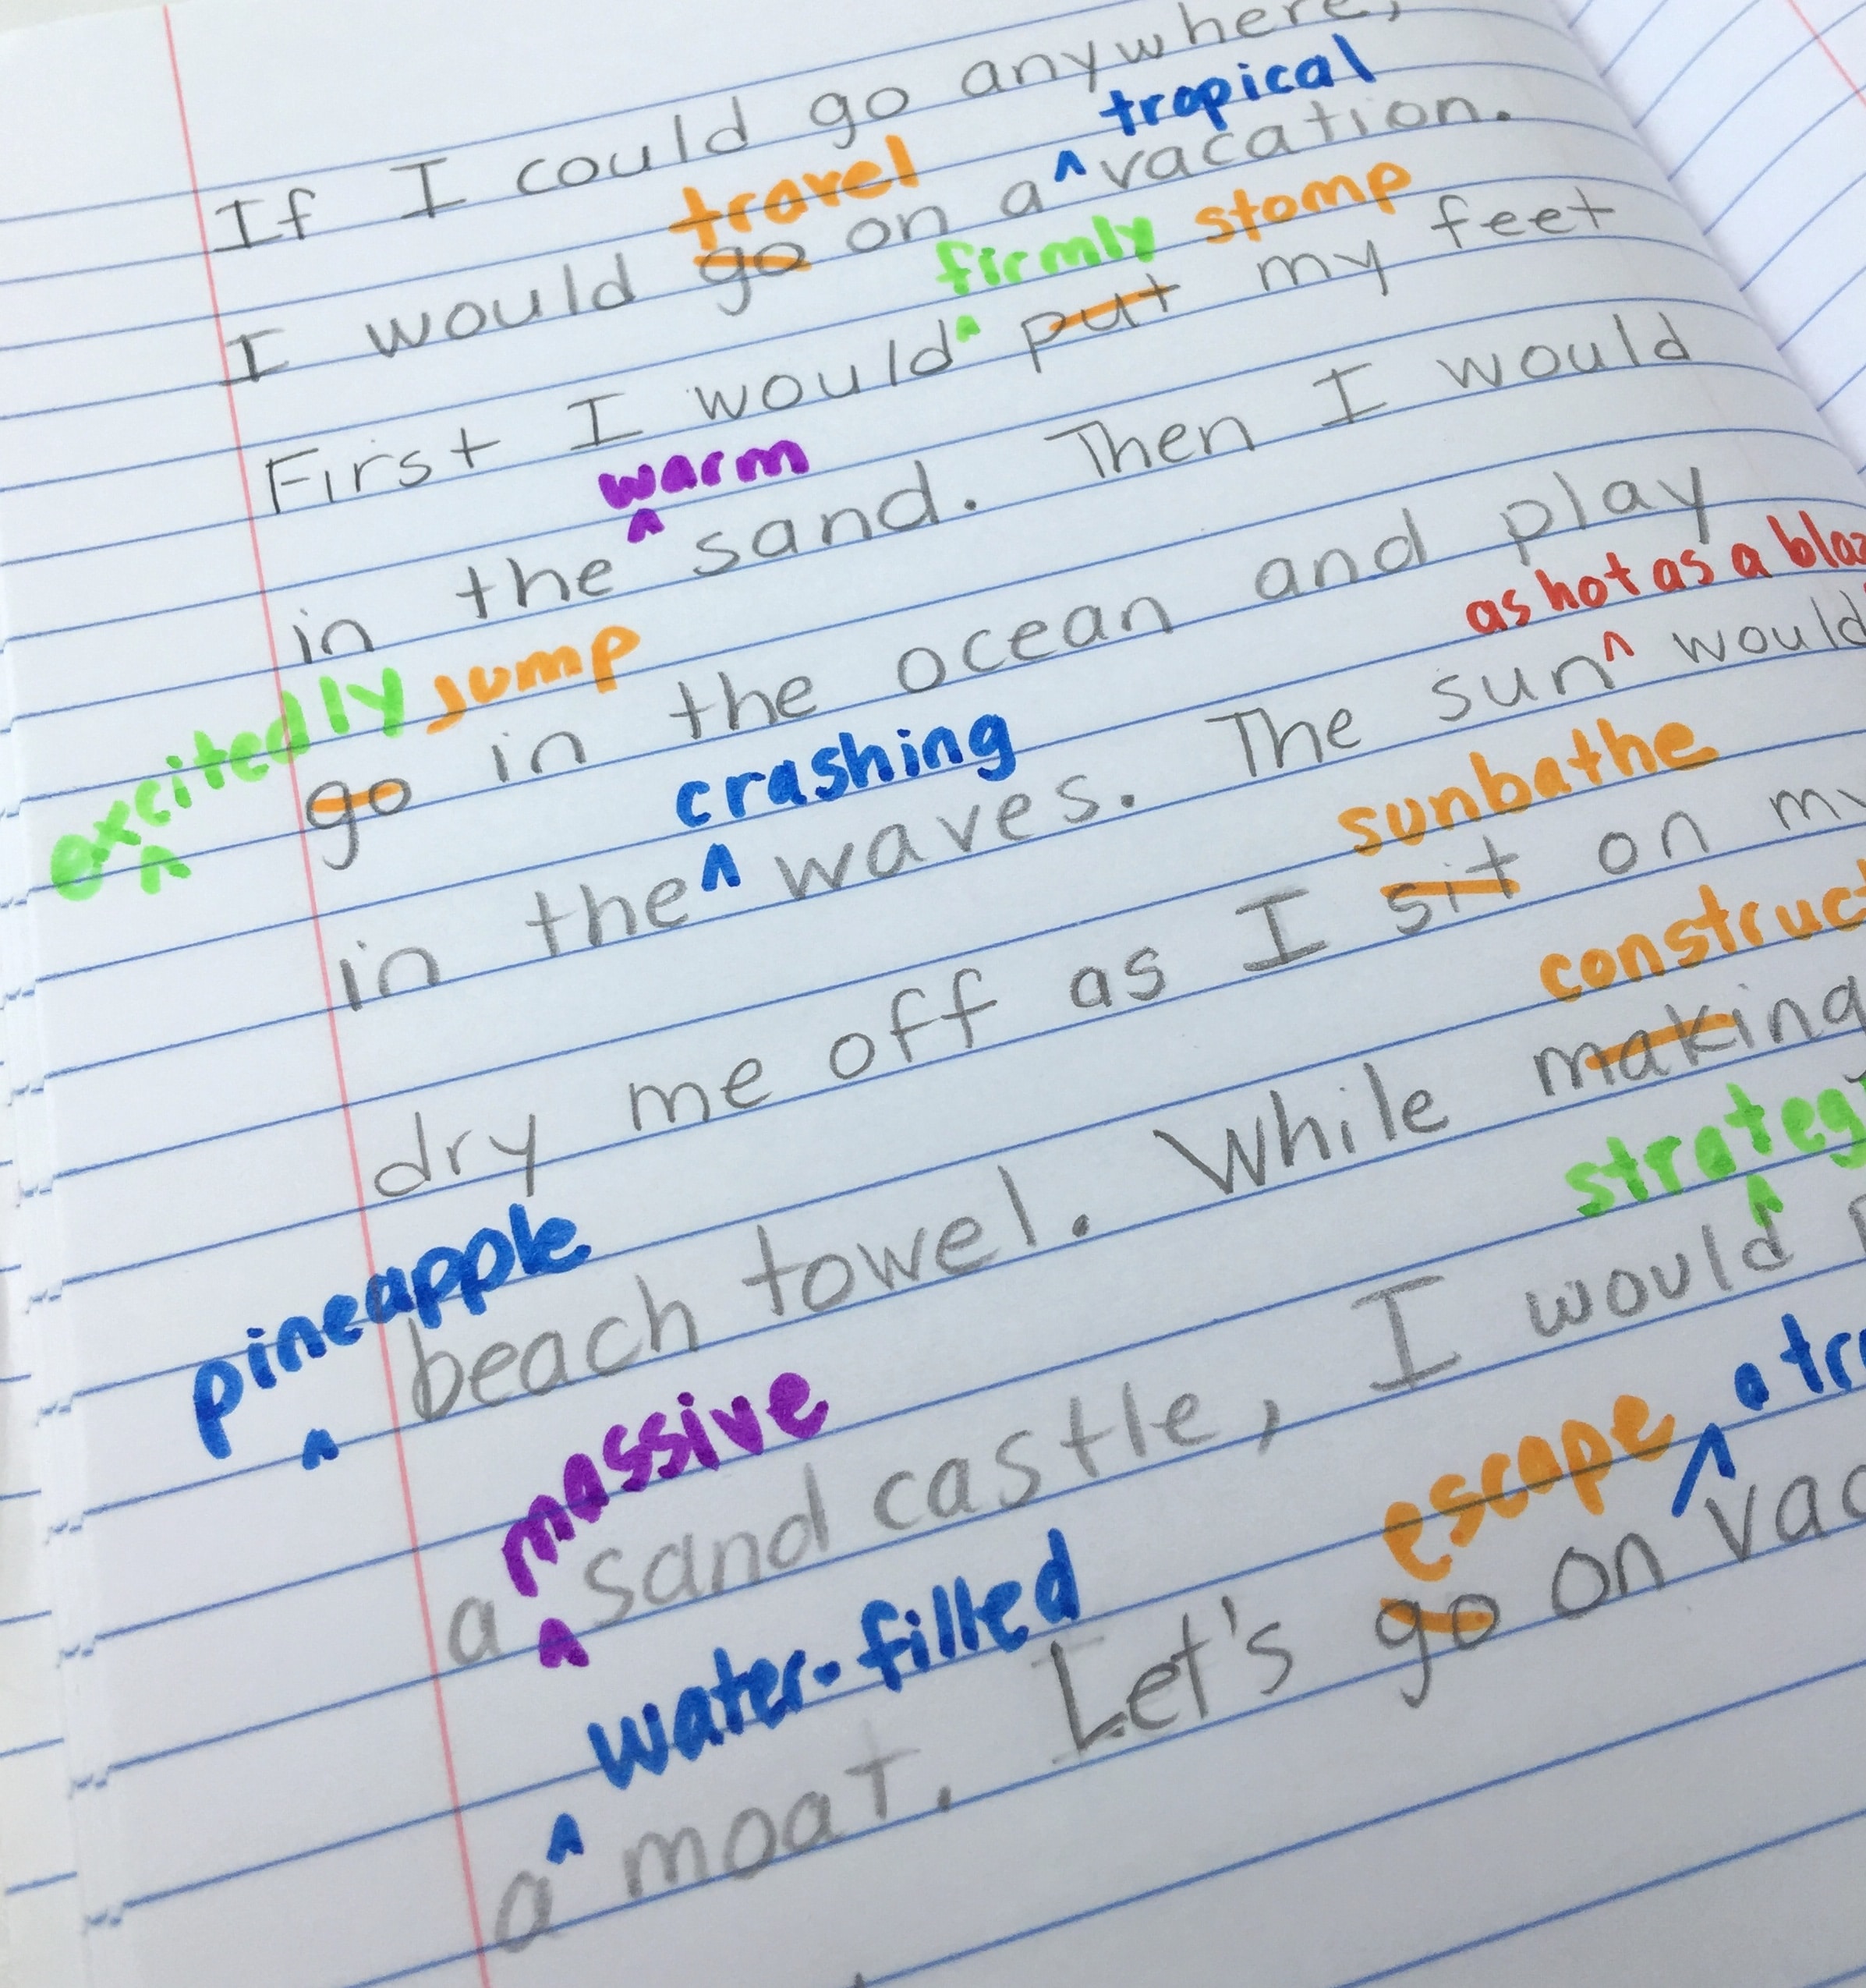 If I could go anywhere,
tropical
travel
I would go on a ^ vacation.
firmly stomp
First I would ^ put my feet
warm
in the ^ sand. Then I would
excitedly jump
^ go in the ocean and play
as hot as a
crashing
in the ^ waves. The sun ^ would
sunbathe
dry me off as I sit on my
construct
pineapple
^ beach towel. While making
massive
a ^ sand castle, I would ^
escape a
water-filled
a ^ moat. Let's go on ^